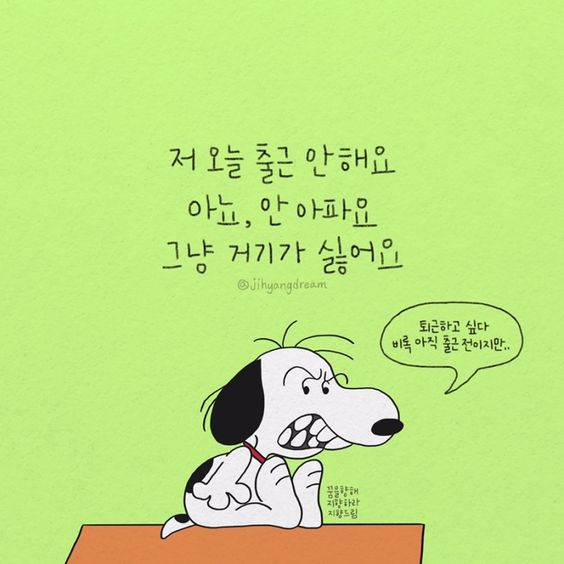 저 오늘 출근 안해요
아뇨, 안 아파요
그냥 거기가 싫어요
@jihyangdream
퇴근하고 싶다
비록 아직 출근 전이지만..
꿈을향해
지향하라
지향드림